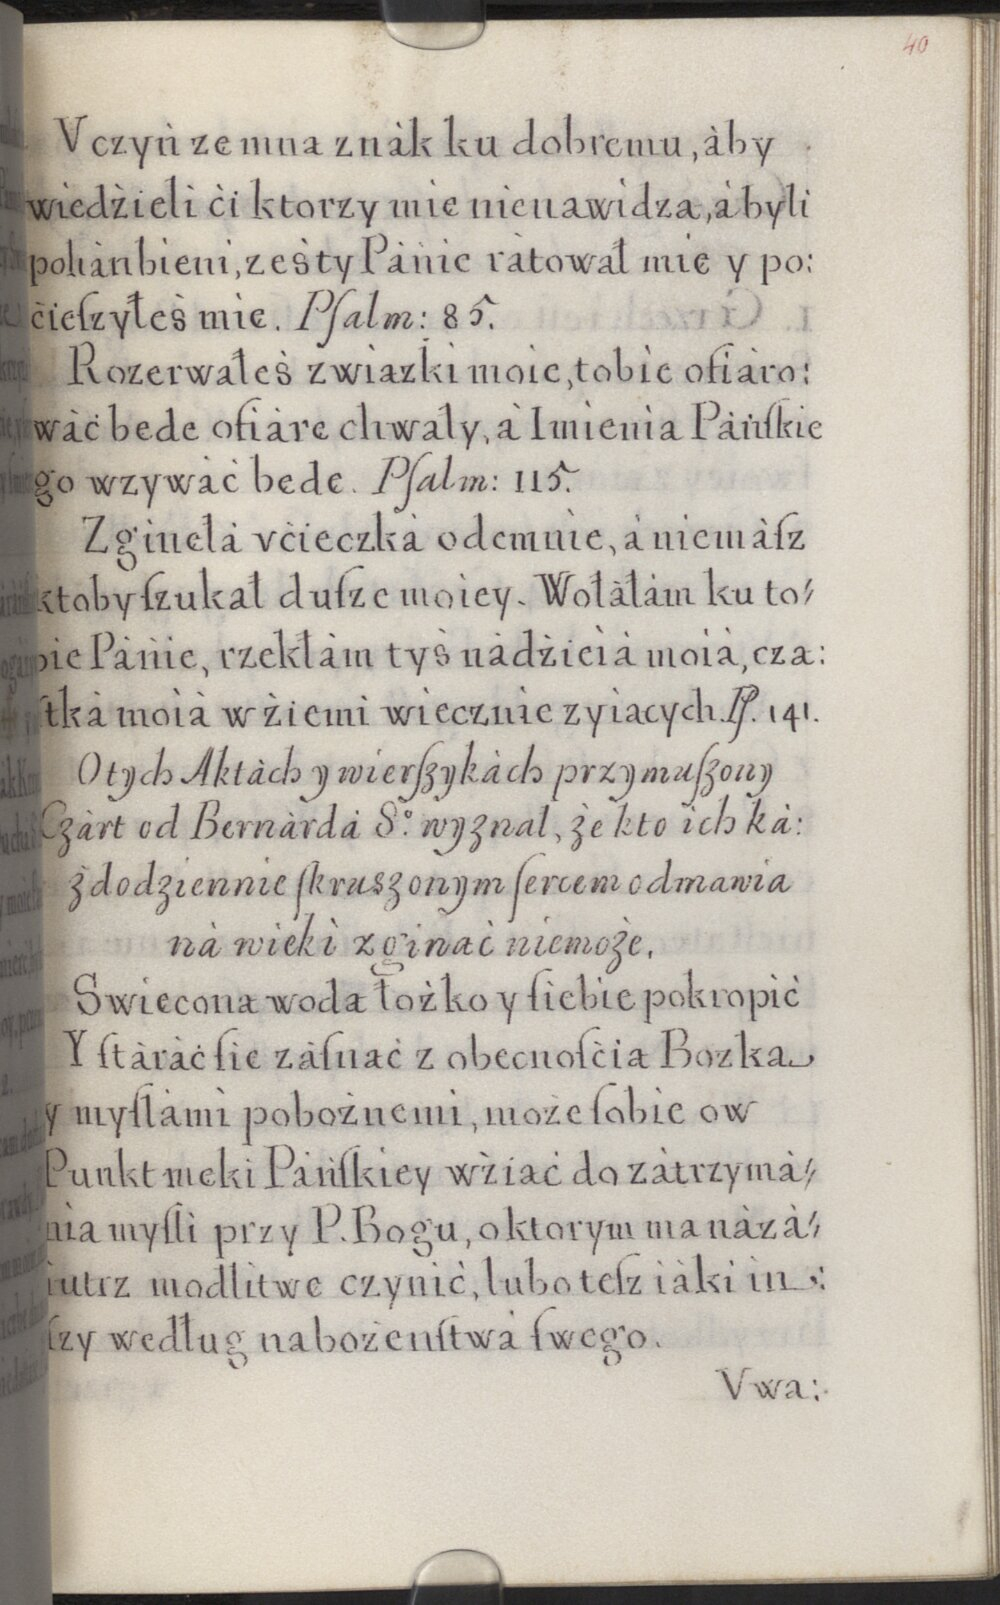 40
Vczyń ze mna znàk ku dobremu, àby
wiedżieli ċi ktorzy mie nienawidza, à byli
pohànbieni, ześ ty Pànie ràtował mie y po:
ċieſzyłeś mie. Pſalm: 85.
Rozerwałeś zwiazki moie, tobie ofiàro:
wàć bede ofiàre chwały, à Imienia Pàńſkie
go wzywàć bede. Pſalm: 115.
Zgineła vċieczkà odemnie, à niemàſz
ktoby ſzukał duſze moiey. Wołàłàm ku to⸗
bie Pànie, rzekłàm tyś nàdżieià moià, cza:
ſtkà moià w żiemi wiecznie zyiacych. Pſ. 141.
O tych Aktàch y wierſzykàch przymuſzony
Czàrt od Bernàrdà S.º wyznal, że kto ich kà:
żdodziennie ſkruszonym ſercem odmawia
nà wieki zginać niemoże.
Swiecona woda łożko y ſiebie pokropić
Y ſtàràć ſie zàſnać z obecnoſċia Bozka
y myſlàmi pobożnemi, może ſobie ow
Punkt meki Pàńſkiey wżiać do zàtrzymà⸗
nia myſli przy P. Bogu, o ktorym ma nàzà⸗
iutrz modlitwe czynić, lubo teſz iàki in:
ſzy według nabożenſtwà ſwego.
Vwa: